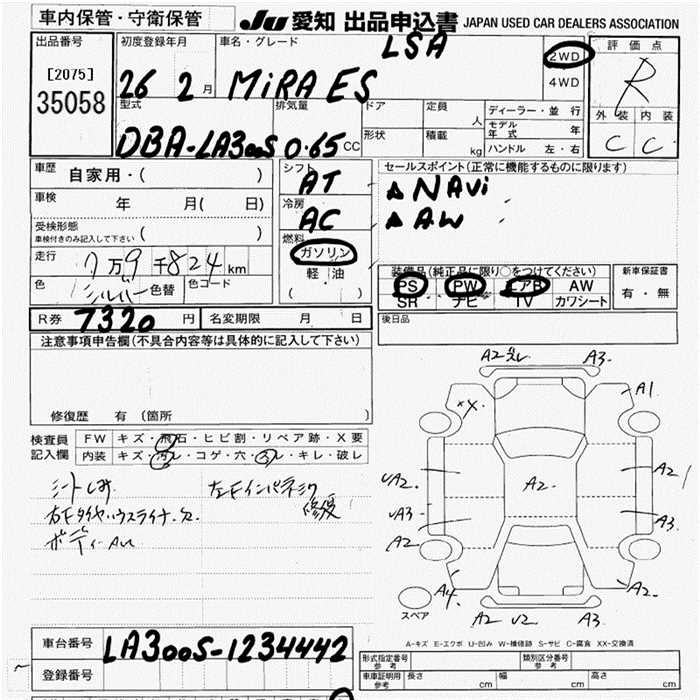 車内保管・守衛保管
Ju 愛知 出品申込書 JAPAN USED CAR DEALERS ASSOCIATION
出品番号
[2075]
35058
初度登録年月
26 2月
車名・グレード
LSA
MiRA ES
2WD
4WD
評価点
R
外装 内装
C C
型式
DBA-LA300S
排気量
0.65 CC
ドア
形状
定員 人
積載 kg
ディーラー・並行
モデル年式 年
ハンドル 左・右
車歴
自家用・( )
車検
年 月( 日)
受検形態
車検付きのみ記入して下さい ( )
走行
7万9千824km
色
シルバー 色替
色コード
シフト
AT
冷房
AC
燃料
ガソリン
軽油
( )
セールスポイント(正常に機能するものに限ります)
NAVi
AW
装備品(純正品に限り○をつけてください)
PS PW エアB AW
SR ナビ TV カワシート
新車保証書
有・無
R券 7320円
名変期限 月 日
後日品
注意事項申告欄(不具合内容等は具体的に記入して下さい)
修復歴 有(箇所 )
検査員記入欄
FW キズ・飛石・ヒビ割・リペア跡・X要
内装 キズ・汚レ・コゲ・穴・スレ・キレ・破レ
シートしみ
右Fタイヤハウスライナー
ボディー
左右Fインパネ
修復
A2 A3
XX A1
A2 A2 A2
A3 A3
A2
A4 A2
スペア
A2 U2 A3
A-キズ E-エクボ U-凹み W-補修跡 S-サビ C-腐食 XX-交換済
車台番号
LA300S-1234442
登録番号
形式指定番号 参考
類別区分番号 参考
車庫証明用 参考
長さ cm 幅 cm 高さ cm